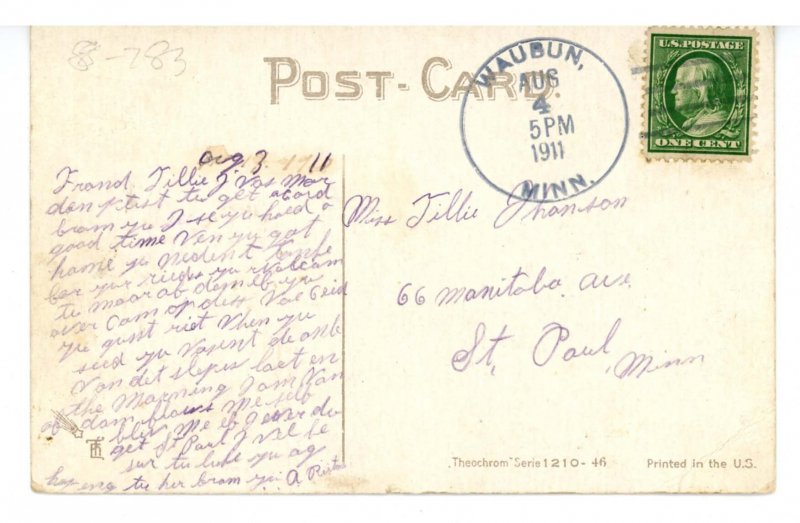 8-783
POST-CARD.
WAUBUN,
AUG
4
5 PM
1911
MINN.
U.S. POSTAGE
ONE CENT
Aug. 3. 1911
Frand Tillie J Vas Mor
dan plest tu get a Card
bram yu I se yu haed a
good time Ven yu gat
home yu nedent
bor yur rieds yu Valcam
tu moor ab dem eb yu
ever Cam op des Vae
yu qust riet When yu
seed yu Vasent de onle
Van det sleps laet en
the Morning I am Van
ab dam blows me self
bliv Me eb I ever du
get St Paul I Vel be
sur tu luk yu ap
haping tu her bram yu. A
Miss Tillie Jhanson
66 Manitoba ave.
St. Paul,
Minn
„Theochrom" Serie 1210 - 46
Printed in the U.S.